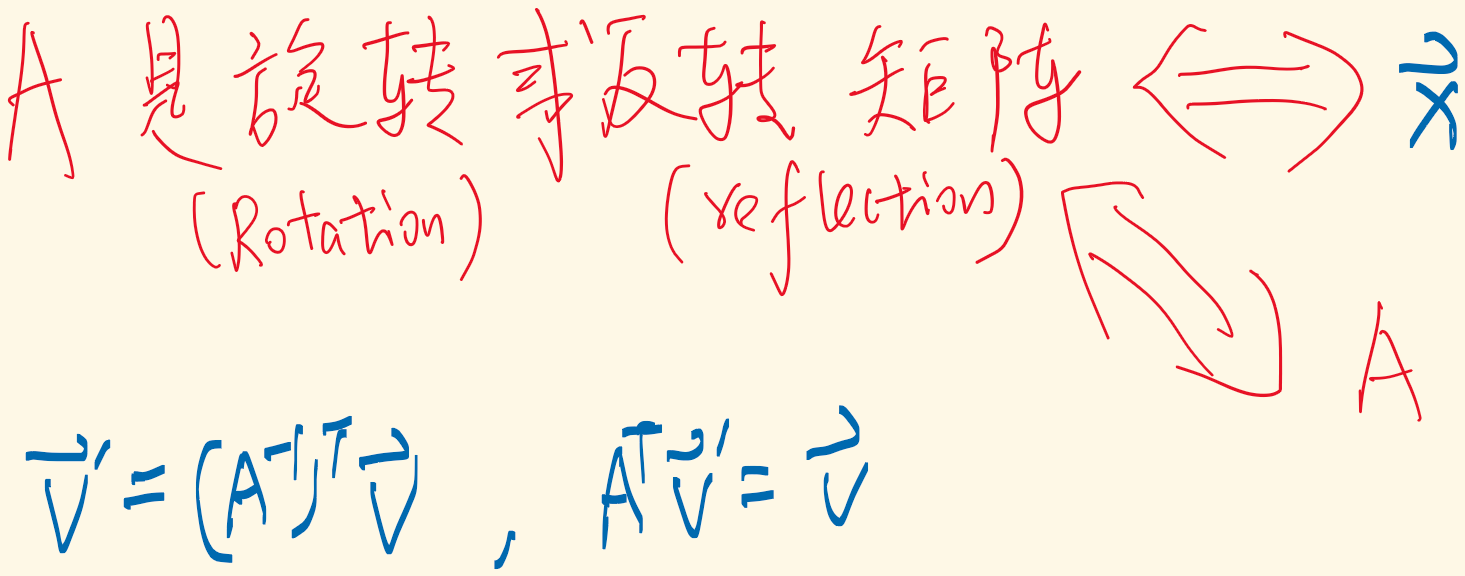 A 是旋转或反转 矩阵 ⟺ x⃗
(Rotation) (reflection)
A
v⃗′ = (A⁻¹)ᵀ v⃗ , Aᵀ v⃗′ = v⃗